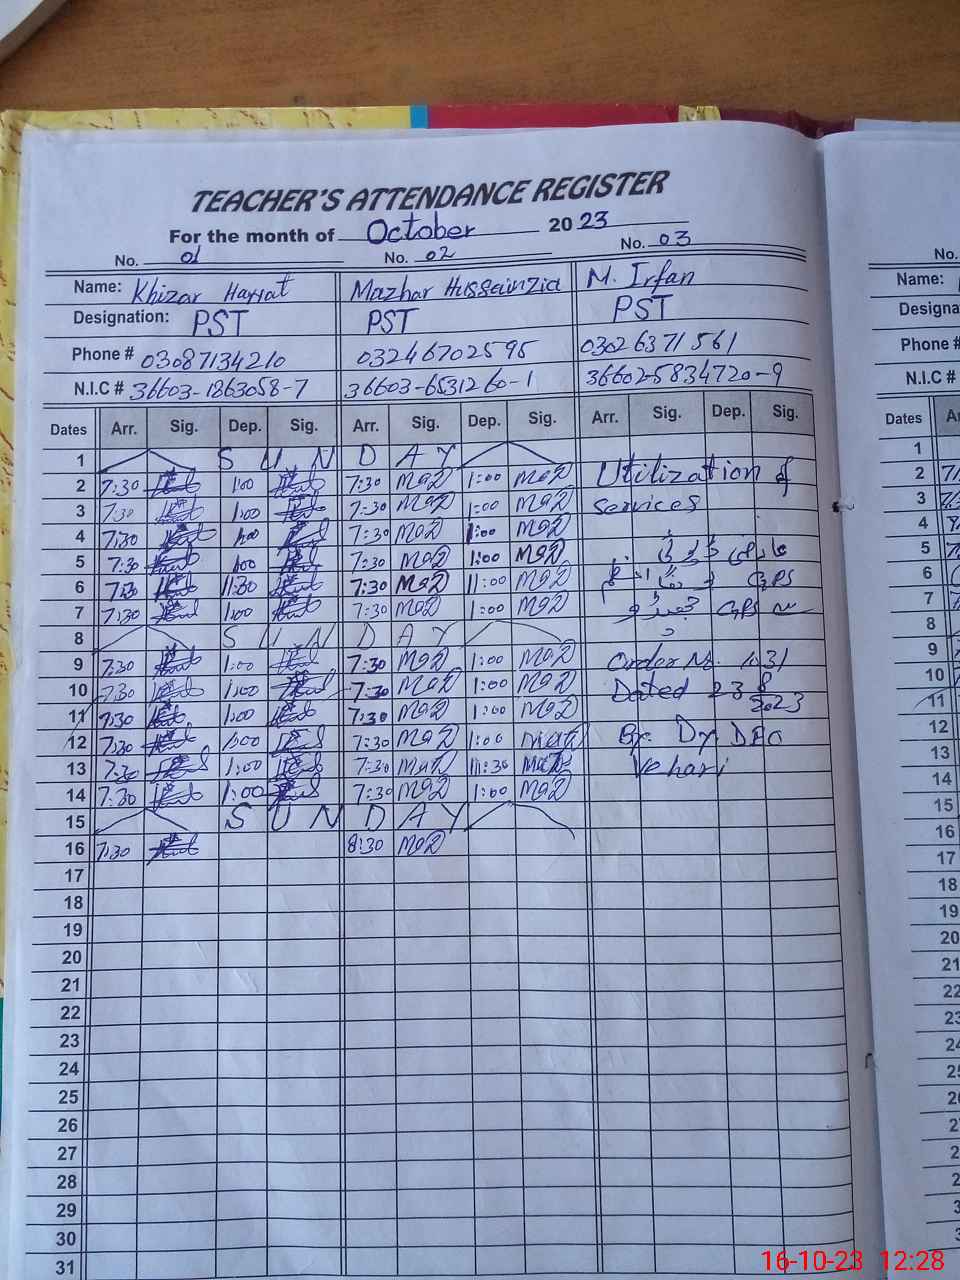 TEACHER'S ATTENDANCE REGISTER
For the month of October 2023
No. 01 No. 02 No. 03
Name: Khizar Hayat Mazhar Hussainzia M. Irfan
Designation: PST PST PST
Phone # 03087134210 03246702595 03026371561
N.I.C # 36603-1863058-7 36603-6531260-1 36602-5834720-9
Dates Arr. Sig. Dep. Sig. Arr. Sig. Dep. Sig. Arr. Sig. Dep. Sig.
1 SUNDAY
2 7:30 1:00 7:30 1:00 Utilization of
3 7:30 1:00 7:30 1:00 services
4 7:30 1:00 7:30 1:00
5 7:30 1:00 7:30 1:00
6 7:30 11:30 7:30 11:00 GPS
7 7:30 1:00 7:30 1:00 GPS سے
8 SUNDAY
9 7:30 1:00 7:30 1:00 Order No.
10 7:30 1:00 7:30 1:00 Dated 23 8 2023
11 7:30 1:00 7:30 1:00
12 7:30 1:00 7:30 1:00 By. Dy DEO
13 7:30 1:00 7:30 11:30 Vehari
14 7:30 1:00 7:30 1:00
15 SUNDAY
16 7:30 8:30
17
18
19
20
21
22
23
24
25
26
27
28
29
30
31
No.
Name:
Designa
Phone #
N.I.C #
Dates
1
2
3
4
5
6
7
8
9
10
11
12
13
14
15
16
17
18
19
20
16-10-23 12:28